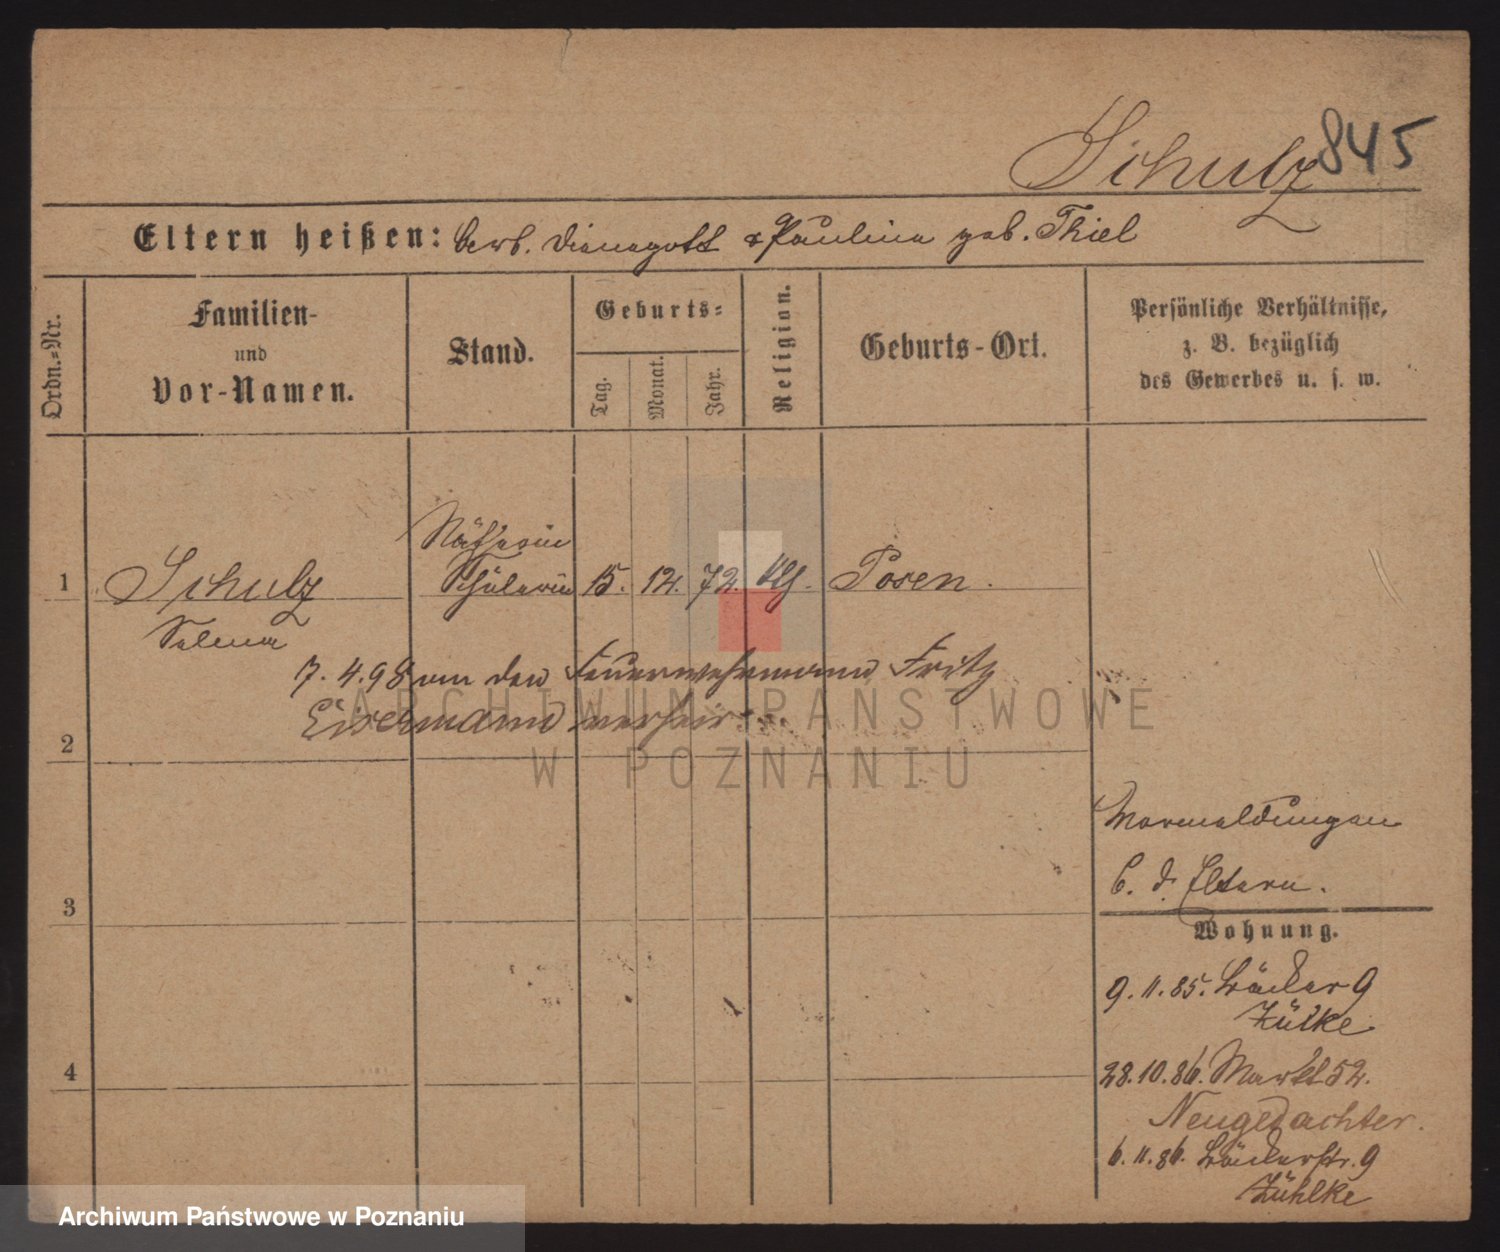 Schulz 845
Eltern heißen: Arb. Dienegott & Paulina geb. Thiel
Ordn.-Nr.
Familien-
und
Vor-Namen.
Stand.
Geburts-
Tag.
Monat.
Jahr.
Religion.
Geburts-Ort.
Persönliche Verhältnisse,
z. B. bezüglich
des Gewerbes u. s. w.
Nähterin
1 Schulz Schülerin 15. 12. 72. Posen.
Selma
7. 4. 98 den Feuerwehrmann Fritz
Eisermann verheir
2
3
4
Vormeldungen
b. d. Eltern.
Wohnung.
9. 11. 85. Bäcker 9
Zülke
28. 10. 86. Markt 52.
Neugedachter.
6. 11. 86. Bäckerstr. 9
Zühlke
ARCHIWUM PAŃSTWOWE
W POZNANIU
Archiwum Państwowe w Poznaniu